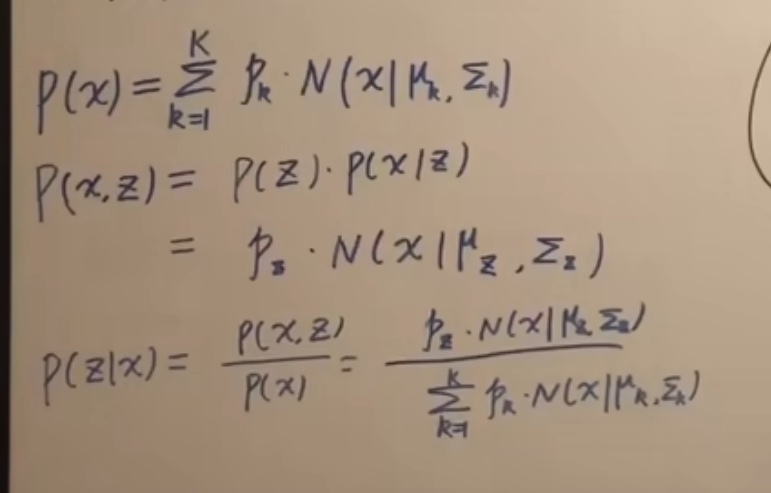 P(x) = \sum_{k=1}^{K} p_k · N(x|μ_k, Σ_k)
P(x,z) = P(z) · P(x|z)
= p_z · N(x|μ_z, Σ_z)
P(z|x) = \frac{P(x,z)}{P(x)} = \frac{p_z · N(x|μ_z, Σ_z)}{\sum_{k=1}^{K} p_k · N(x|μ_k, Σ_k)}